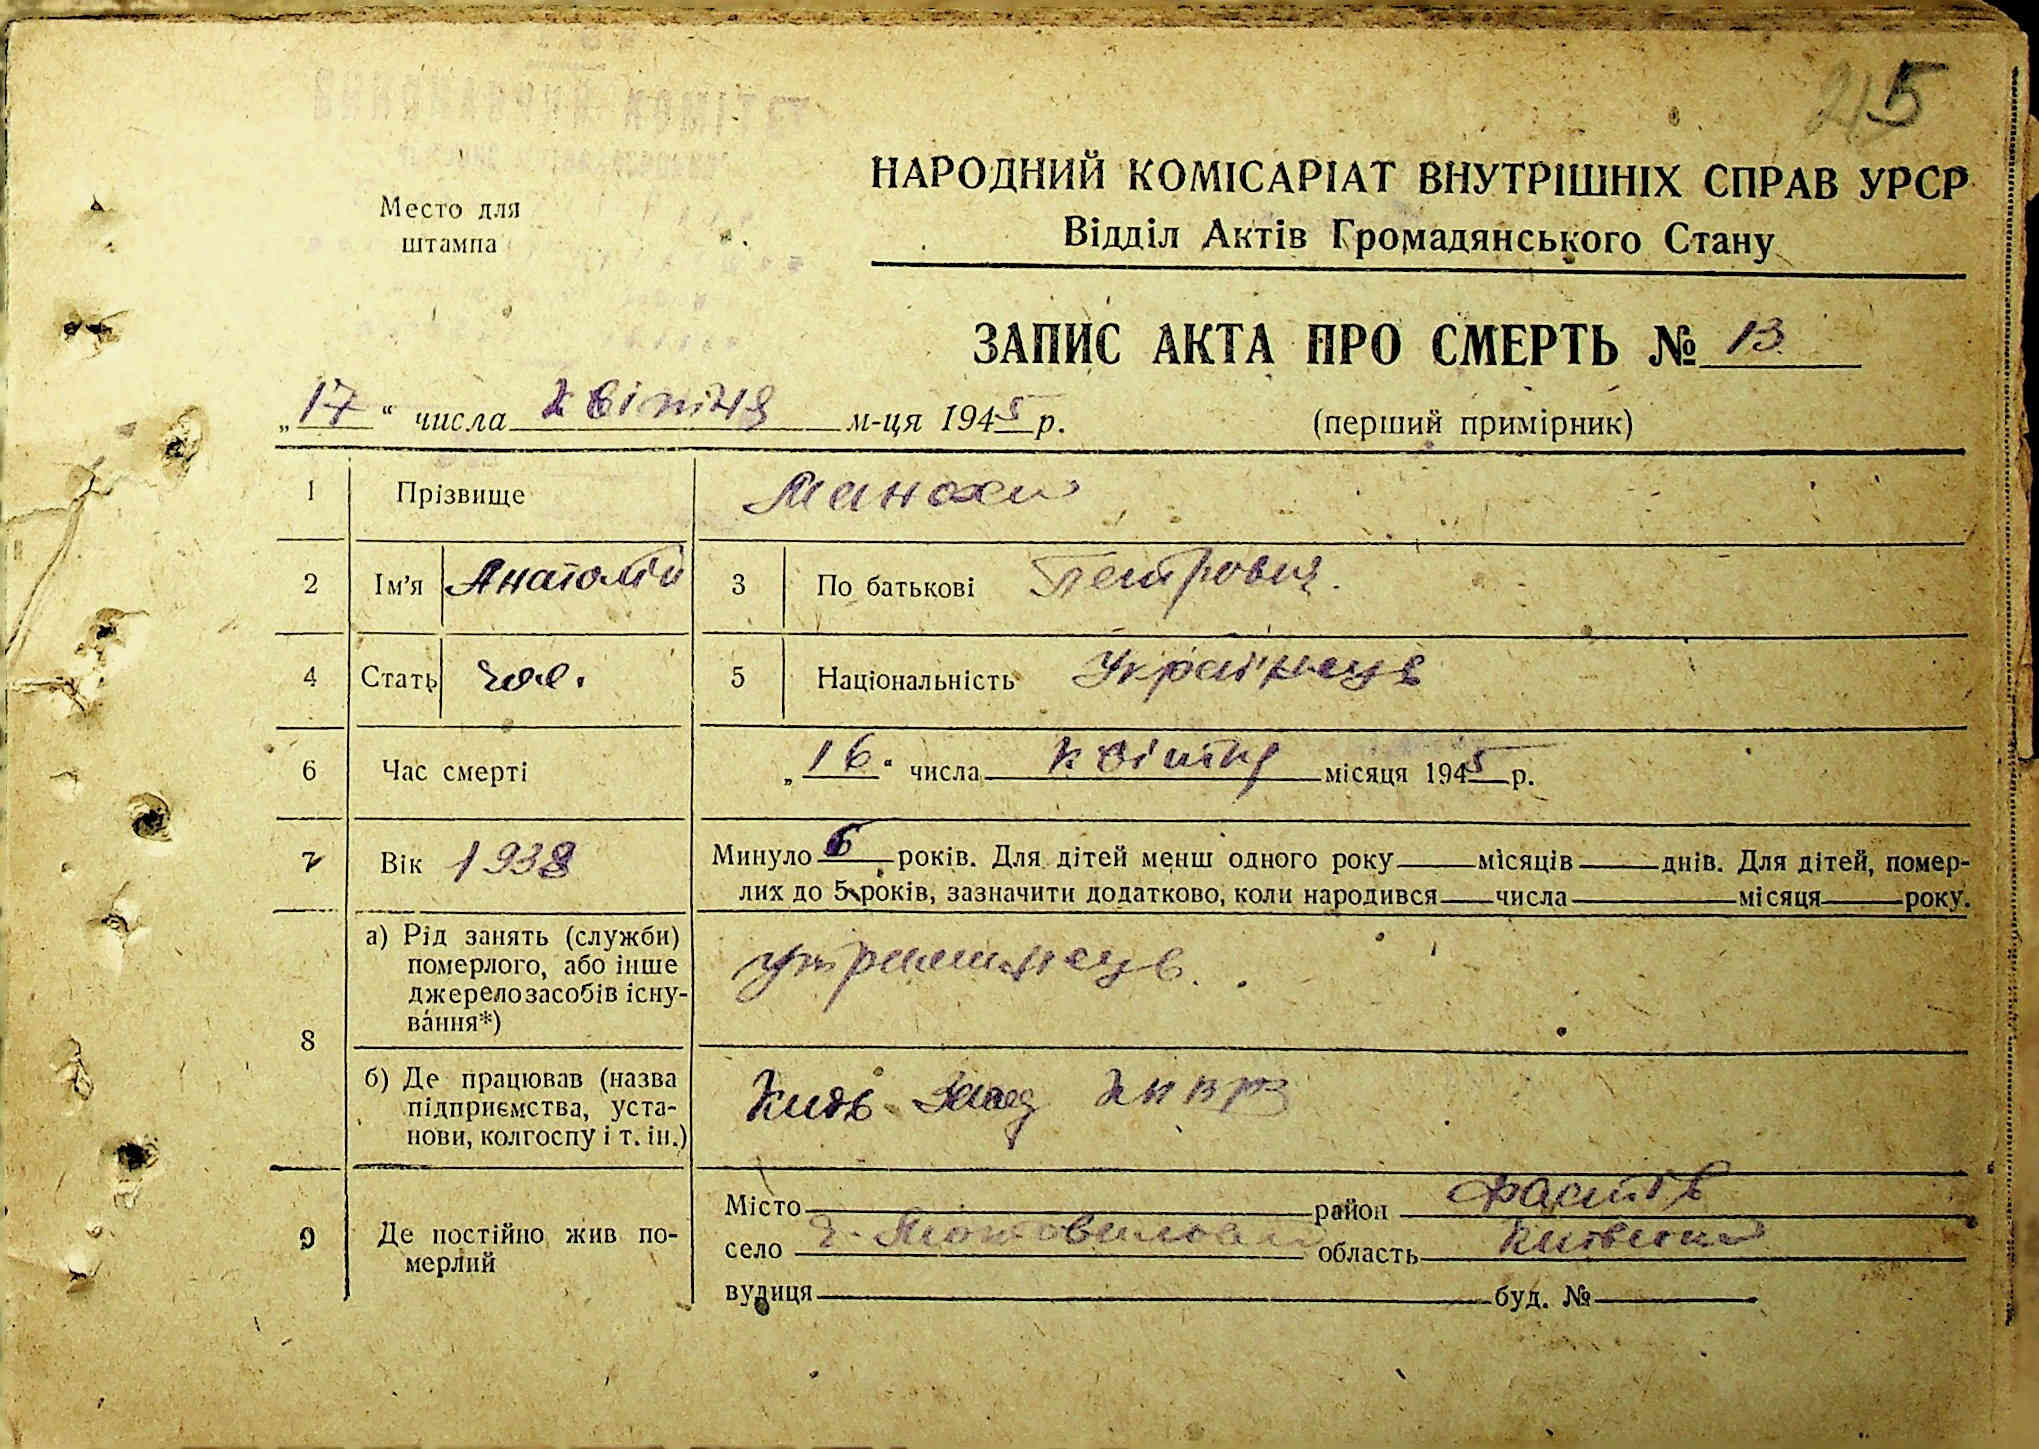 25
НАРОДНИЙ КОМІСАРІАТ ВНУТРІШНІХ СПРАВ УРСР
Место для
штампа
Відділ Актів Громадянського Стану
ЗАПИС АКТА ПРО СМЕРТЬ № 13
„17“ числа квітня м-ця 1945 р.
(перший примірник)
1 Прізвище
2 Ім'я Анатолій 3 По батькові Петрович.
4 Стать чол. 5 Національність Українець
6 Час смерті „16. числа квітня місяця 1945 р.
7 Вік 1938 Минуло 6 років. Для дітей менш одного року місяців днів. Для дітей, помер-
лих до 5 років, зазначити додатково, коли народився числа місяця року.
8 а) Рід занять (служби)
померлого, або інше
джерело засобів існу-
вання*)
утриманець.
б) Де працював (назва
підприємства, уста-
нови, колгоспу і т. ін.)
9 Де постійно жив по-
мерлий
Місто район Фастів
село область
вулиця буд. №